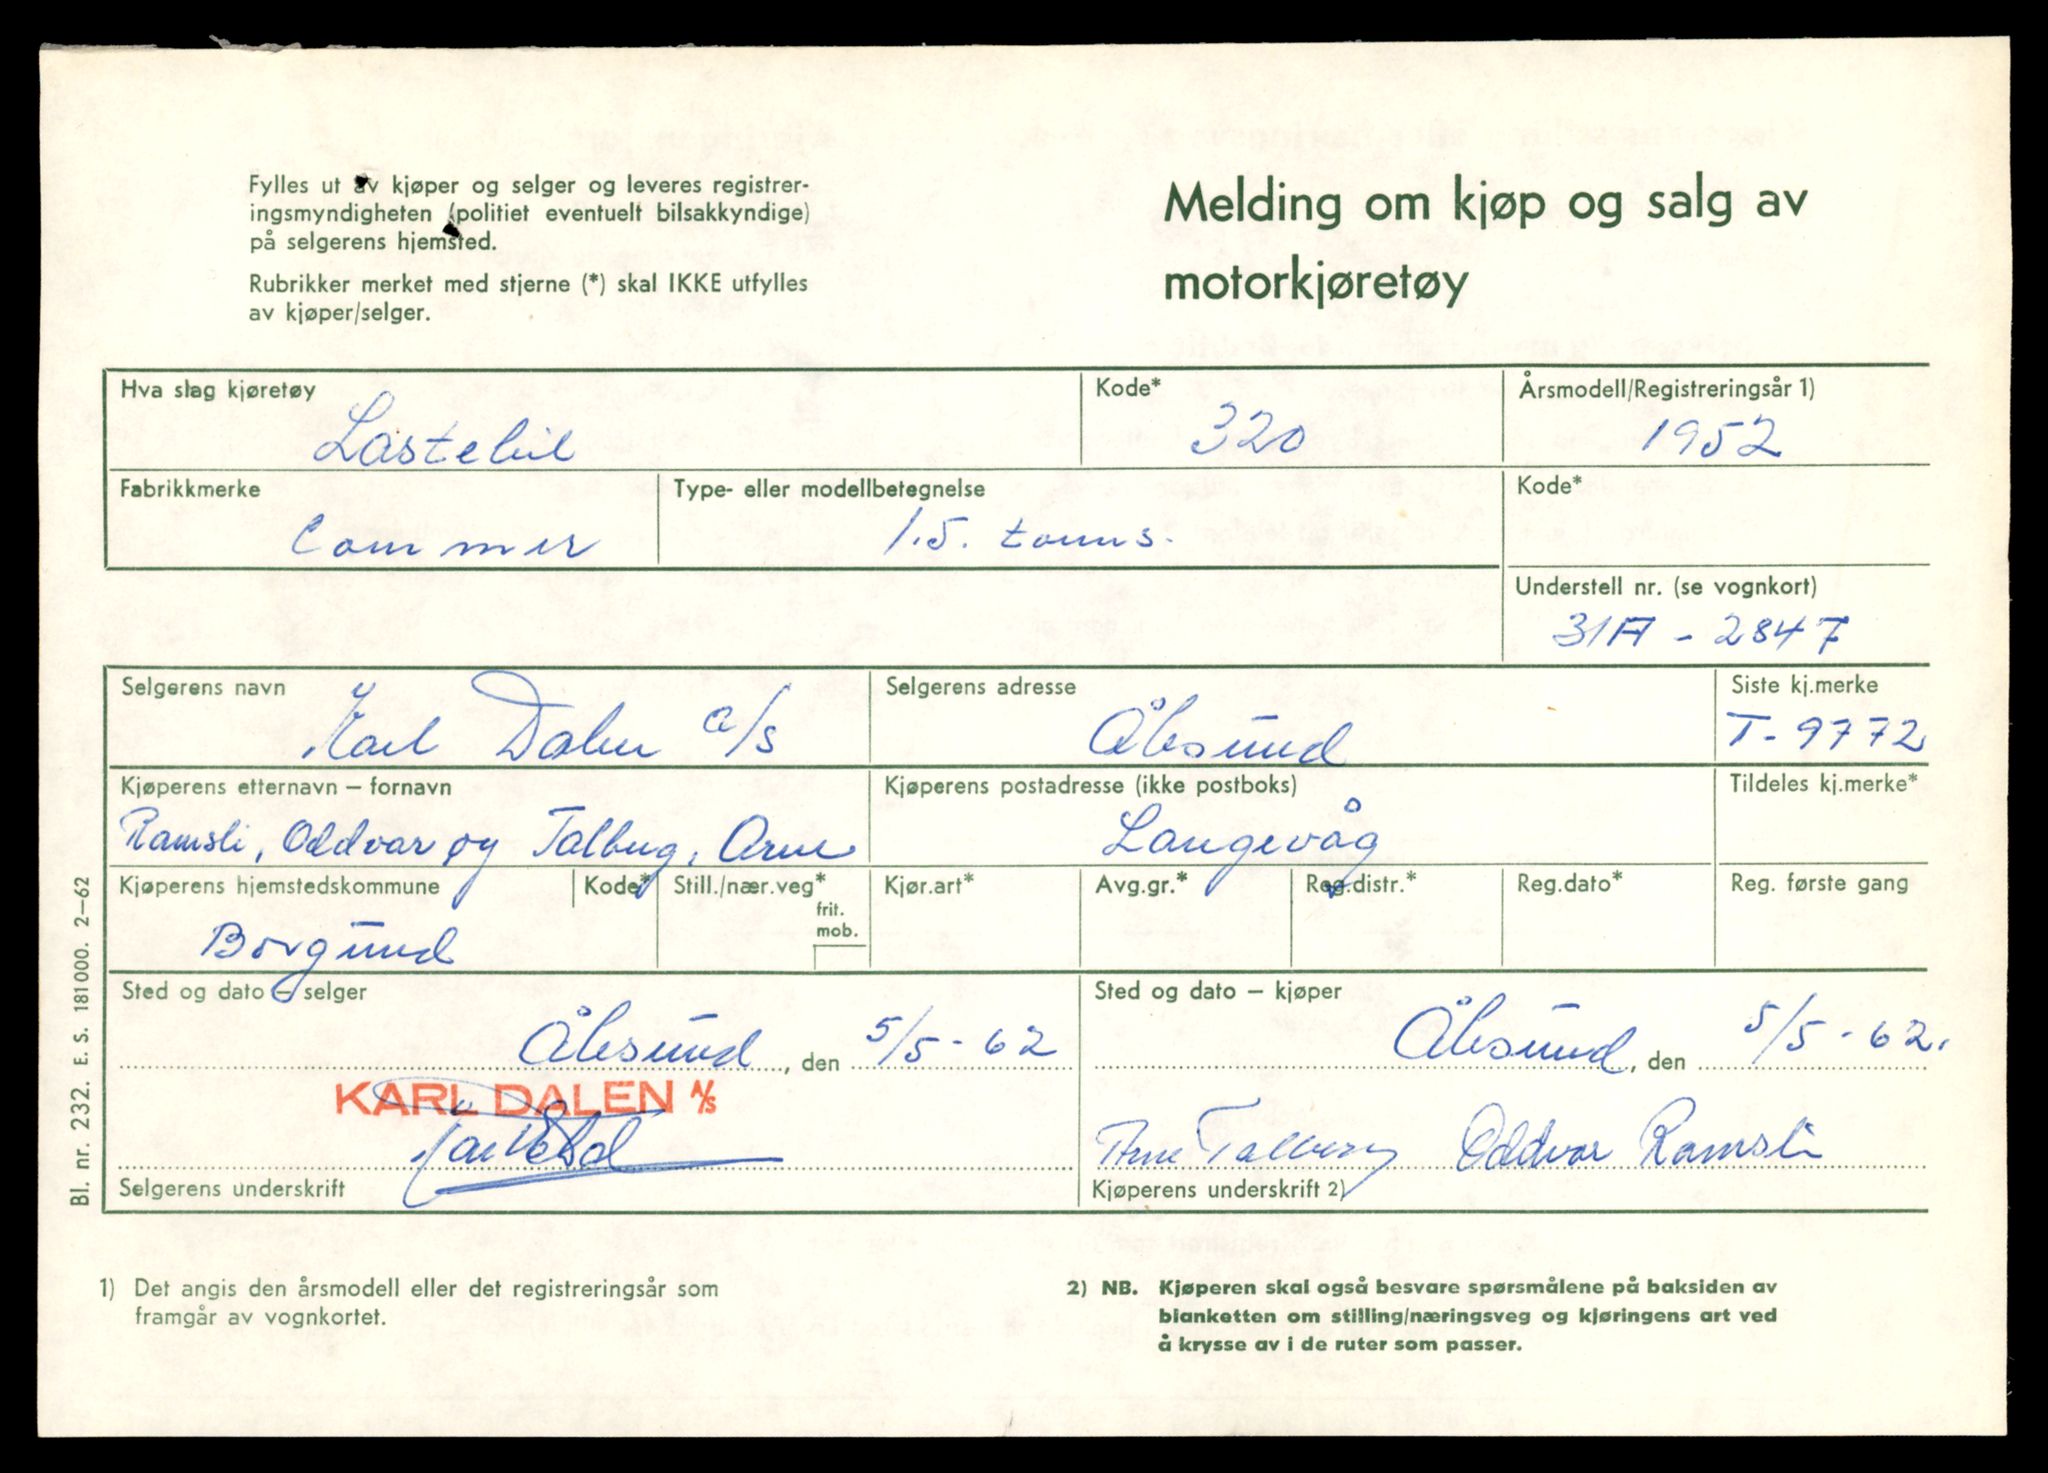 Fylles ut av kjøper og selger og leveres registrer-
ingsmyndigheten (politiet eventuelt bilsakkyndige)
på selgerens hjemsted.
Rubrikker merket med stjerne (*) skal IKKE utfylles
av kjøper/selger.
Melding om kjøp og salg av
motorkjøretøy
Hva slag kjøretøy
Lastebil
Kode*
320
Årsmodell/Registreringsår 1)
1952
Fabrikkmerke
Commer
Type- eller modellbetegnelse
1.5. tonns.
Kode*
Understell nr. (se vognkort)
31A - 2847
Selgerens navn
Karl Dalen a/s
Selgerens adresse
Ålesund
Siste kj.merke
T-9772
Kjøperens etternavn – fornavn
Ramsli, Oddvar og Talberg, Arne
Kjøperens postadresse (ikke postboks)
Langevåg
Tildeles kj.merke*
Kjøperens hjemstedskommune
Borgund
Kode*
Still./nær.veg*
frit.
mob.
Kjør.art*
Avg.gr.*
Reg.distr.*
Reg.dato*
Reg. første gang
Sted og dato – selger
Ålesund, den 5/5-62
KARL DALEN A/S
Selgerens underskrift
Sted og dato – kjøper
Ålesund, den 5/5-62.
Arne Talberg Oddvar Ramsli
Kjøperens underskrift 2)
Bl. nr. 232. E. S. 181000. 2–62
1) Det angis den årsmodell eller det registreringsår som
framgår av vognkortet.
2) NB. Kjøperen skal også besvare spørsmålene på baksiden av
blanketten om stilling/næringsveg og kjøringens art ved
å krysse av i de ruter som passer.